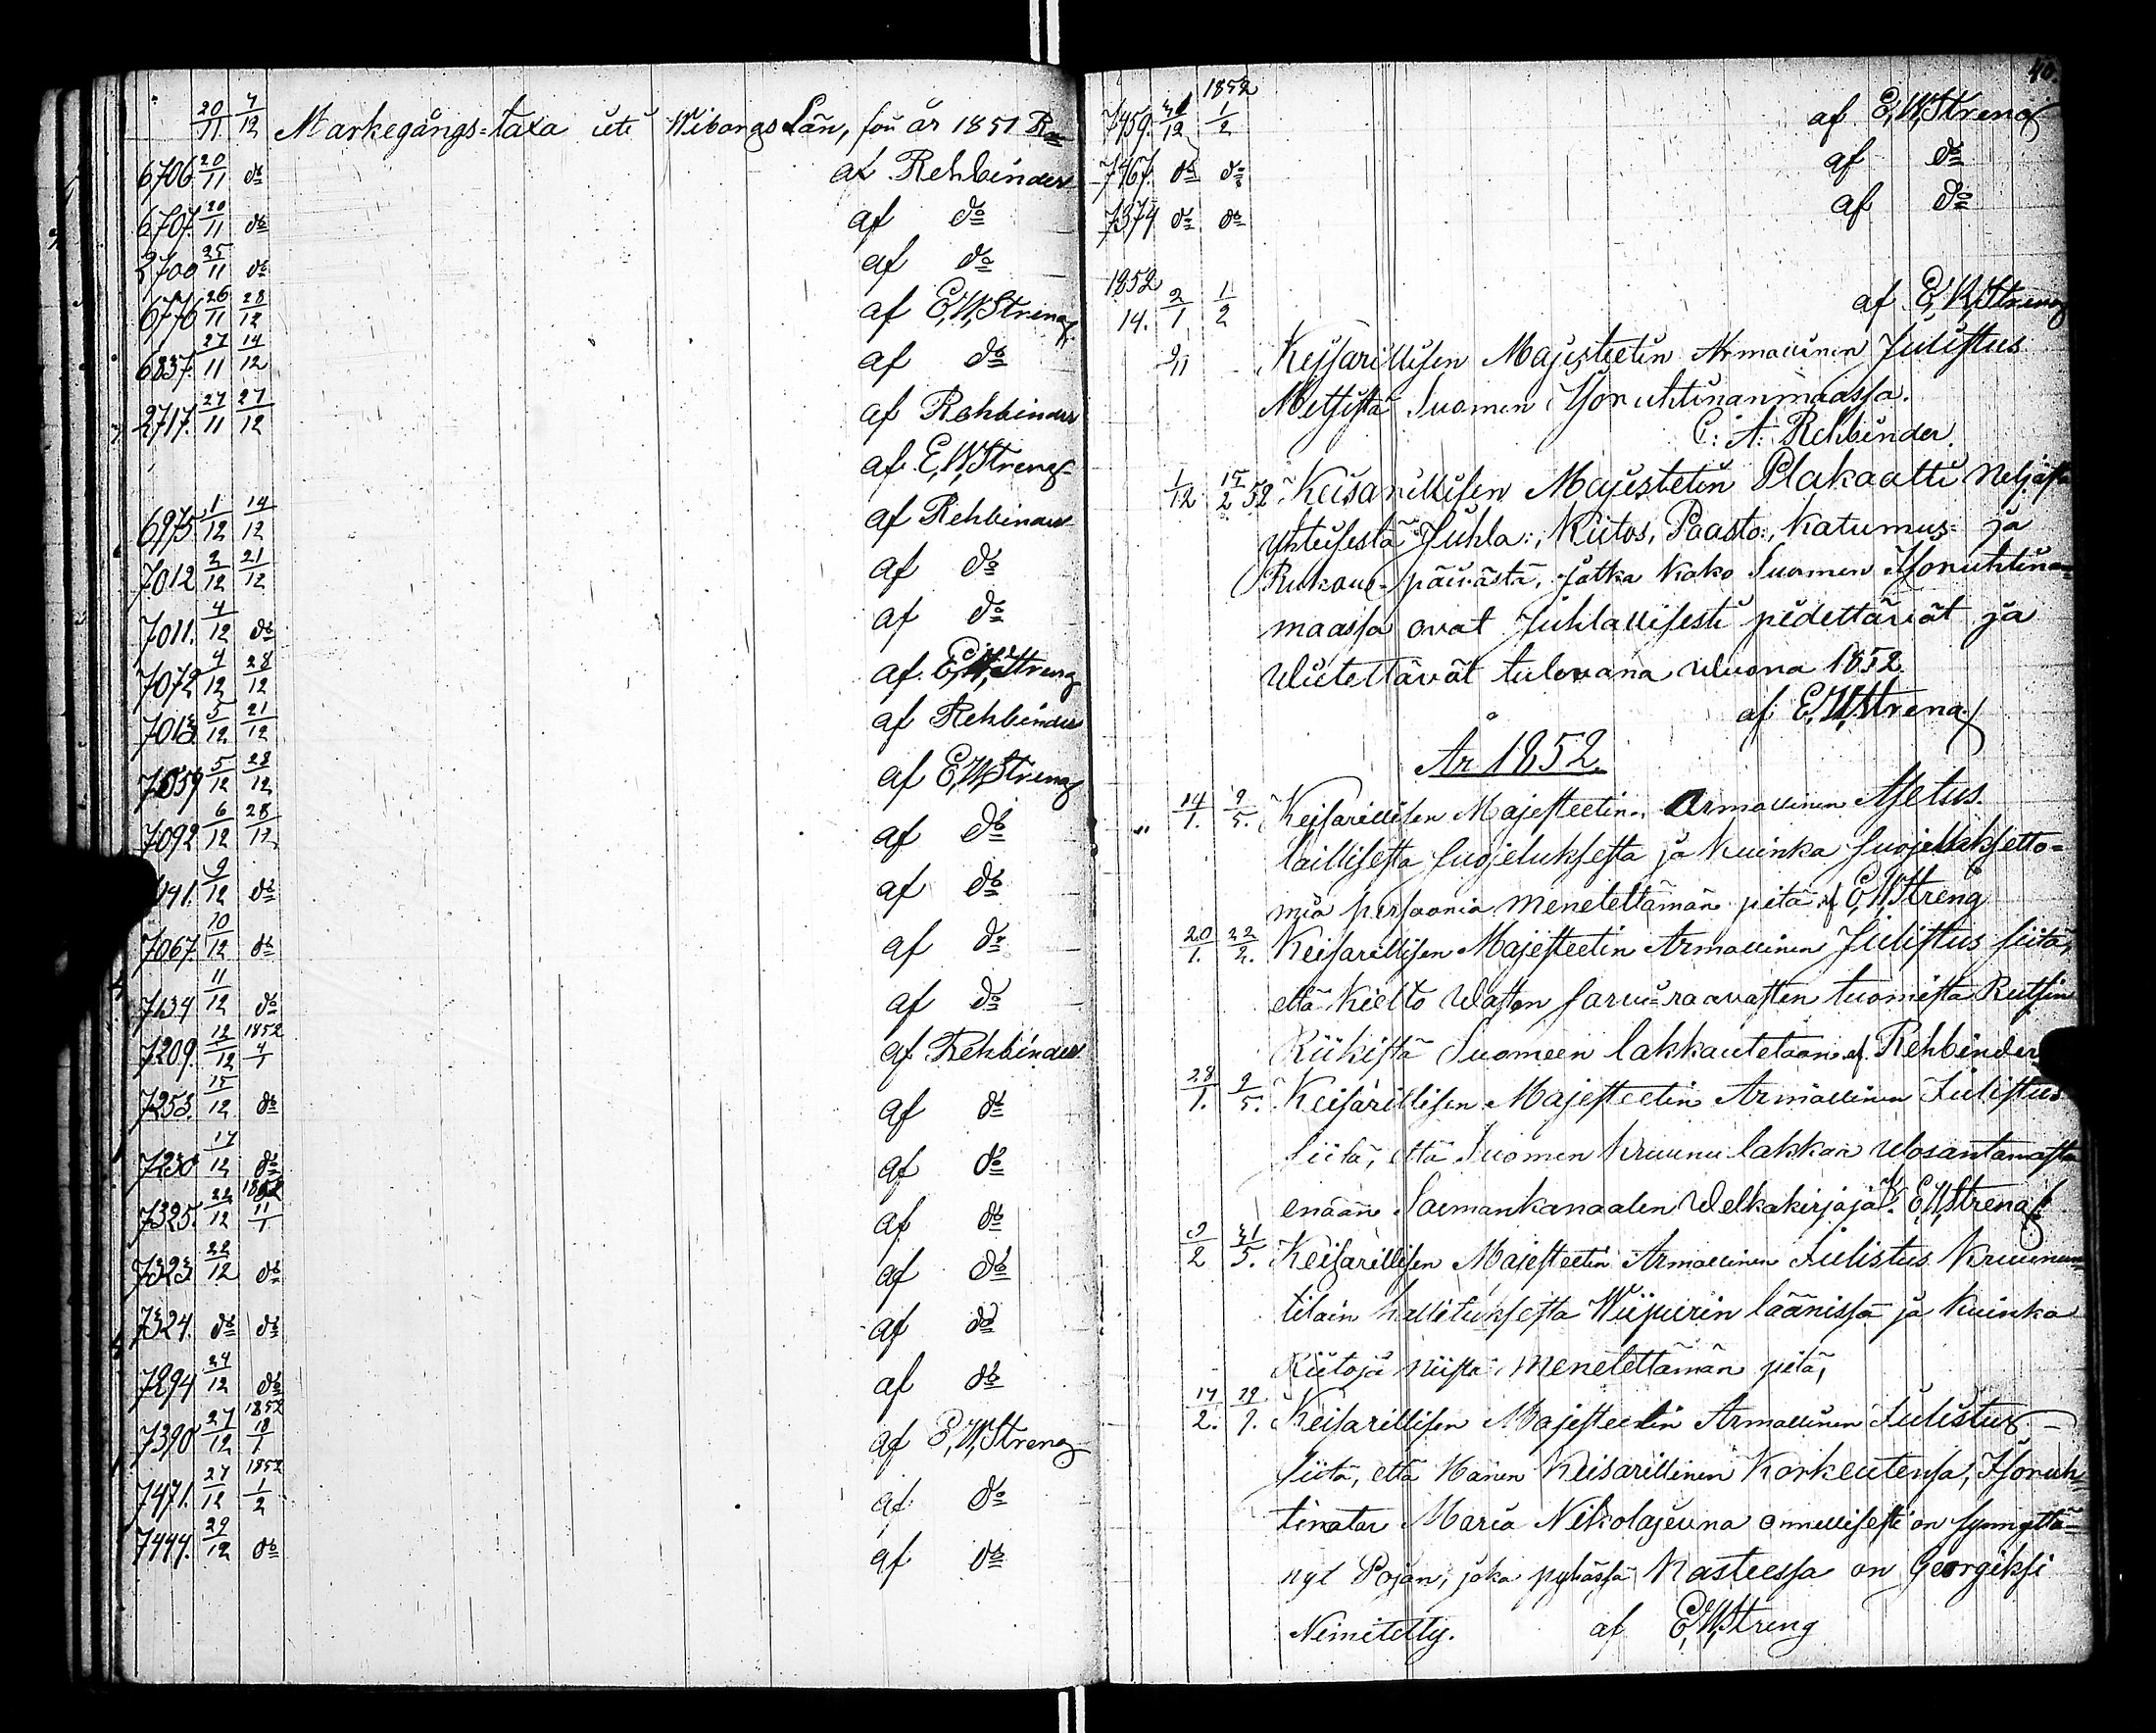 20/11 7/12 Markegångs-taxa uti Wiborgs Län, för år 1851
6706 20/11 do af Rehbinder
6707. 20/11 do af do
2700 25/11 do af do
6776 26/11 28/12 af E,W,Streng
6837. 27/11 14/12 af do
2717. 27/11 27/12 af Rehbinder
af E,W,Streng
6975 1/12 14/12 af Rehbinder
7012 2/12 21/12 af do
7011. 4/12 do af do
7072 4/12 28/12 af E,W,Streng
7013. 5/12 21/12 af Rehbinder
7059 5/12 28/12 af E,W,Streng
7092 6/12 28/12 af do
141. 9/12 do af do
7067 10/12 do af do
7134 11/12 do af do
7209. 12/12 1852 4/1 af Rehbinder
7253. 15/12 do af do
7230 17/12 do af do
7325. 22/12 1852 11/1 af do
7323 22/12 do af do
7324. do do af do
7294 24/12 do af do
7390 27/12 1852 18/1 af E,W,Streng
7471. 27/12 1852 1/2 af do
7444. 29/12 do af do
40.
1852
7459. 31/12 1/2 af E,W,Streng
7467. do do af do
7374 do do af do
1852
14. 2/1 1/2 af E,W,Streng
9/11 Keisarillisen Majesteetin Armollinen Julistus
Metsistä Suomen Isonruhtinanmaassa.
C: A: Rehbinder.
1/12 15/2 52 Keisarillisen Majestetin Plakaatti Neljästä
yhteisestä Juhla:, Kiitos, Paasto:, Katumus- ja
Rukous-päivästä, jotka koko Suomen Isonruhtinan=
maassa ovat Juhlallisesti pidettävät ja
Wietettävät tulevana Wuona 1852.
af E,W,Streng
År 1852.
14/1. 9/5. Keisarillisen Majesteetin, Armollinen Asetus.
laillisesta suojeluksesta ja kuinka suojelluksetto=
mia persoonia meneteltämän pitä af E,W,Streng
20/1. 22/2. Keisarillisen Majesteetin Armollinen Julistus siitä,
että Kielto Wasten sarwi-raavasten tuomista Rutsin
Riikistä Suomeen lakkautetaan af. Rehbinder
28/1. 9/5. Keisarillisen Majesteetin Armollinen Julistus
siitä, että Suomen Kruunu lakkaa Ulosantamasta
enään Saimankanaalen Welkakirjoja af E,W,Streng
9/2 31/5. Keisarillisen Majesteetin Armollinen Julistus Kruunun=
tilain hallituksesta Wiipurin läänissä ja Kuinka
Riitoja niistä meneteltämän pitä,
17/2. 19/7. Keisarillisen Majesteetin Armollinen Julistus, -
siitä, että Hänen Keisarillinen Korkeutensa, Isonruh=
tinatar Maria Nikolajevna onnellisesti on synnyttä=
nyt Pojan, joka pyhässä Kasteessa on Georgiksi
Nimitetty. af E,W,Streng